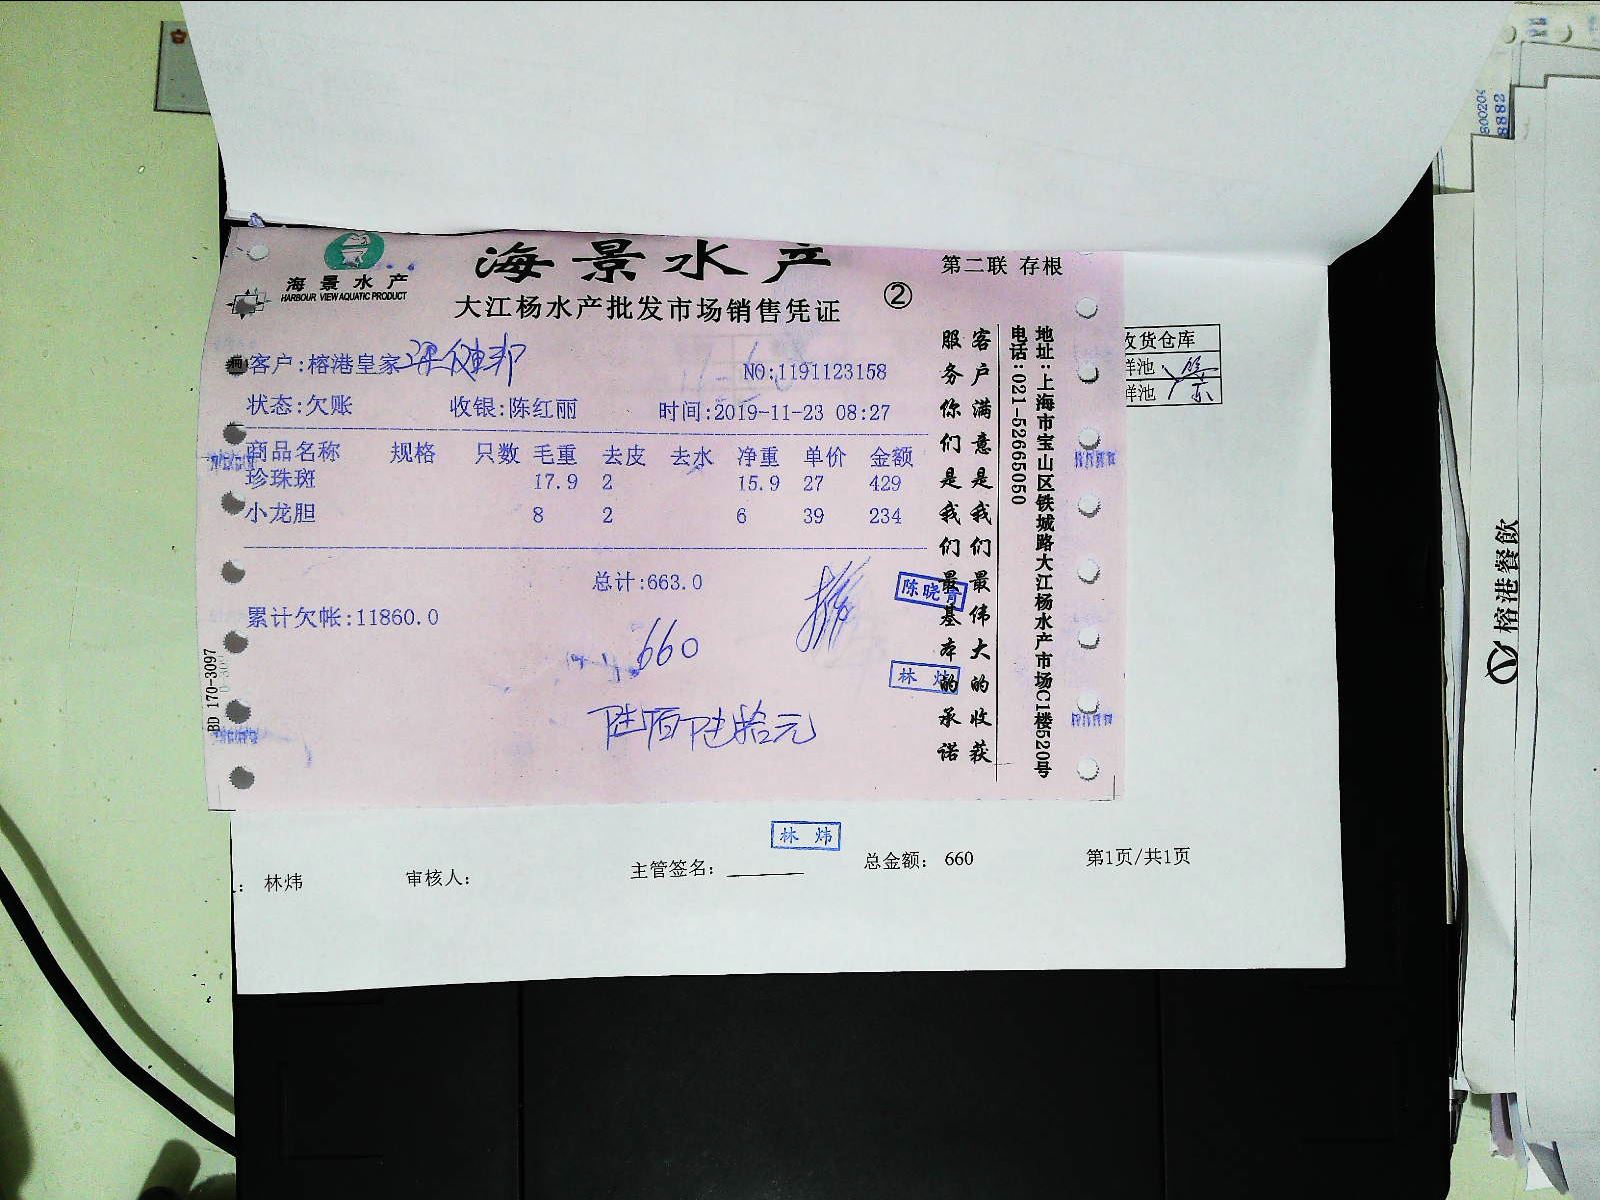 海景水产
HARBOUR VIEW AQUATIC PRODUCT
海景水产
大江杨水产批发市场销售凭证
②
第二联 存根
客户:榕港皇家
NO:1191123158
状态:欠账 收银:陈红丽 时间:2019-11-23 08:27
商品名称 规格 只数 毛重 去皮 去水 净重 单价 金额
珍珠斑 17.9 2 15.9 27 429
小龙胆 8 2 6 39 234
总计:663.0
累计欠帐:11860.0
660
陆佰陆拾元
陈晓青
林炜
客户满意是我们最伟大的收获
服务你们是我们最基本的承诺
地址:上海市宝山区铁城路大江杨水产市场C1楼520号
电话:021-52665050
BD 170-3097
收货仓库
鲜池
鲜池
林炜
: 林炜 审核人: 主管签名: 总金额: 660 第1页/共1页
榕港餐飲
800204
8882